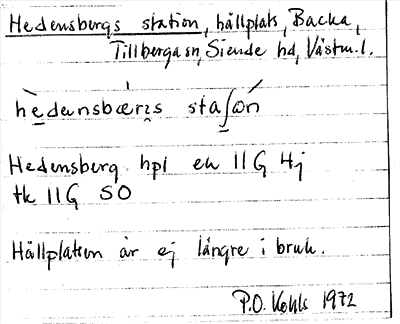 Hedensbergs station, hållplats, Backa,
Tillberga sn, Siende hd, Västm.l.
hedensbærıs staʃon
Hedensberg hpl ek 11G 4j
tk 11G SO
Hållplatsen är ej längre i bruk.
P.O. Kohls 1972